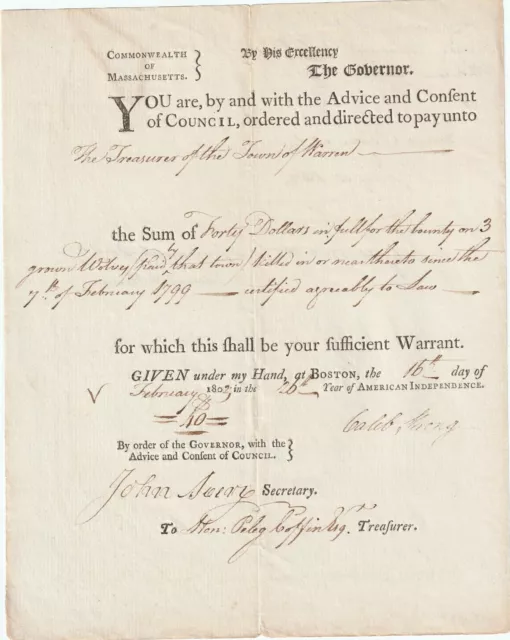 COMMONWEALTH
OF
MASSACHUSETTS.
By His Excellency
The Governor.
YOU are, by and with the Advice and Conſent
of COUNCIL, ordered and directed to pay unto
The Treasurer of the Town of Warren
the Sum of Forty Dollars in full for the bounty on 3
grown Wolves (paid by that town) killed in or near thereto since the
7th of February 1799 — certified agreeably to Law —
for which this ſhall be your ſufficient Warrant.
GIVEN under my Hand, at BOSTON, the 16th day of
February 180 in the 26th Year of AMERICAN INDEPENDENCE.
40
Caleb Strong
By order of the GOVERNOR, with the
Advice and Conſent of COUNCIL.
John Avery Secretary.
To Hon: Peleg Coffin Esqr. Treaſurer.